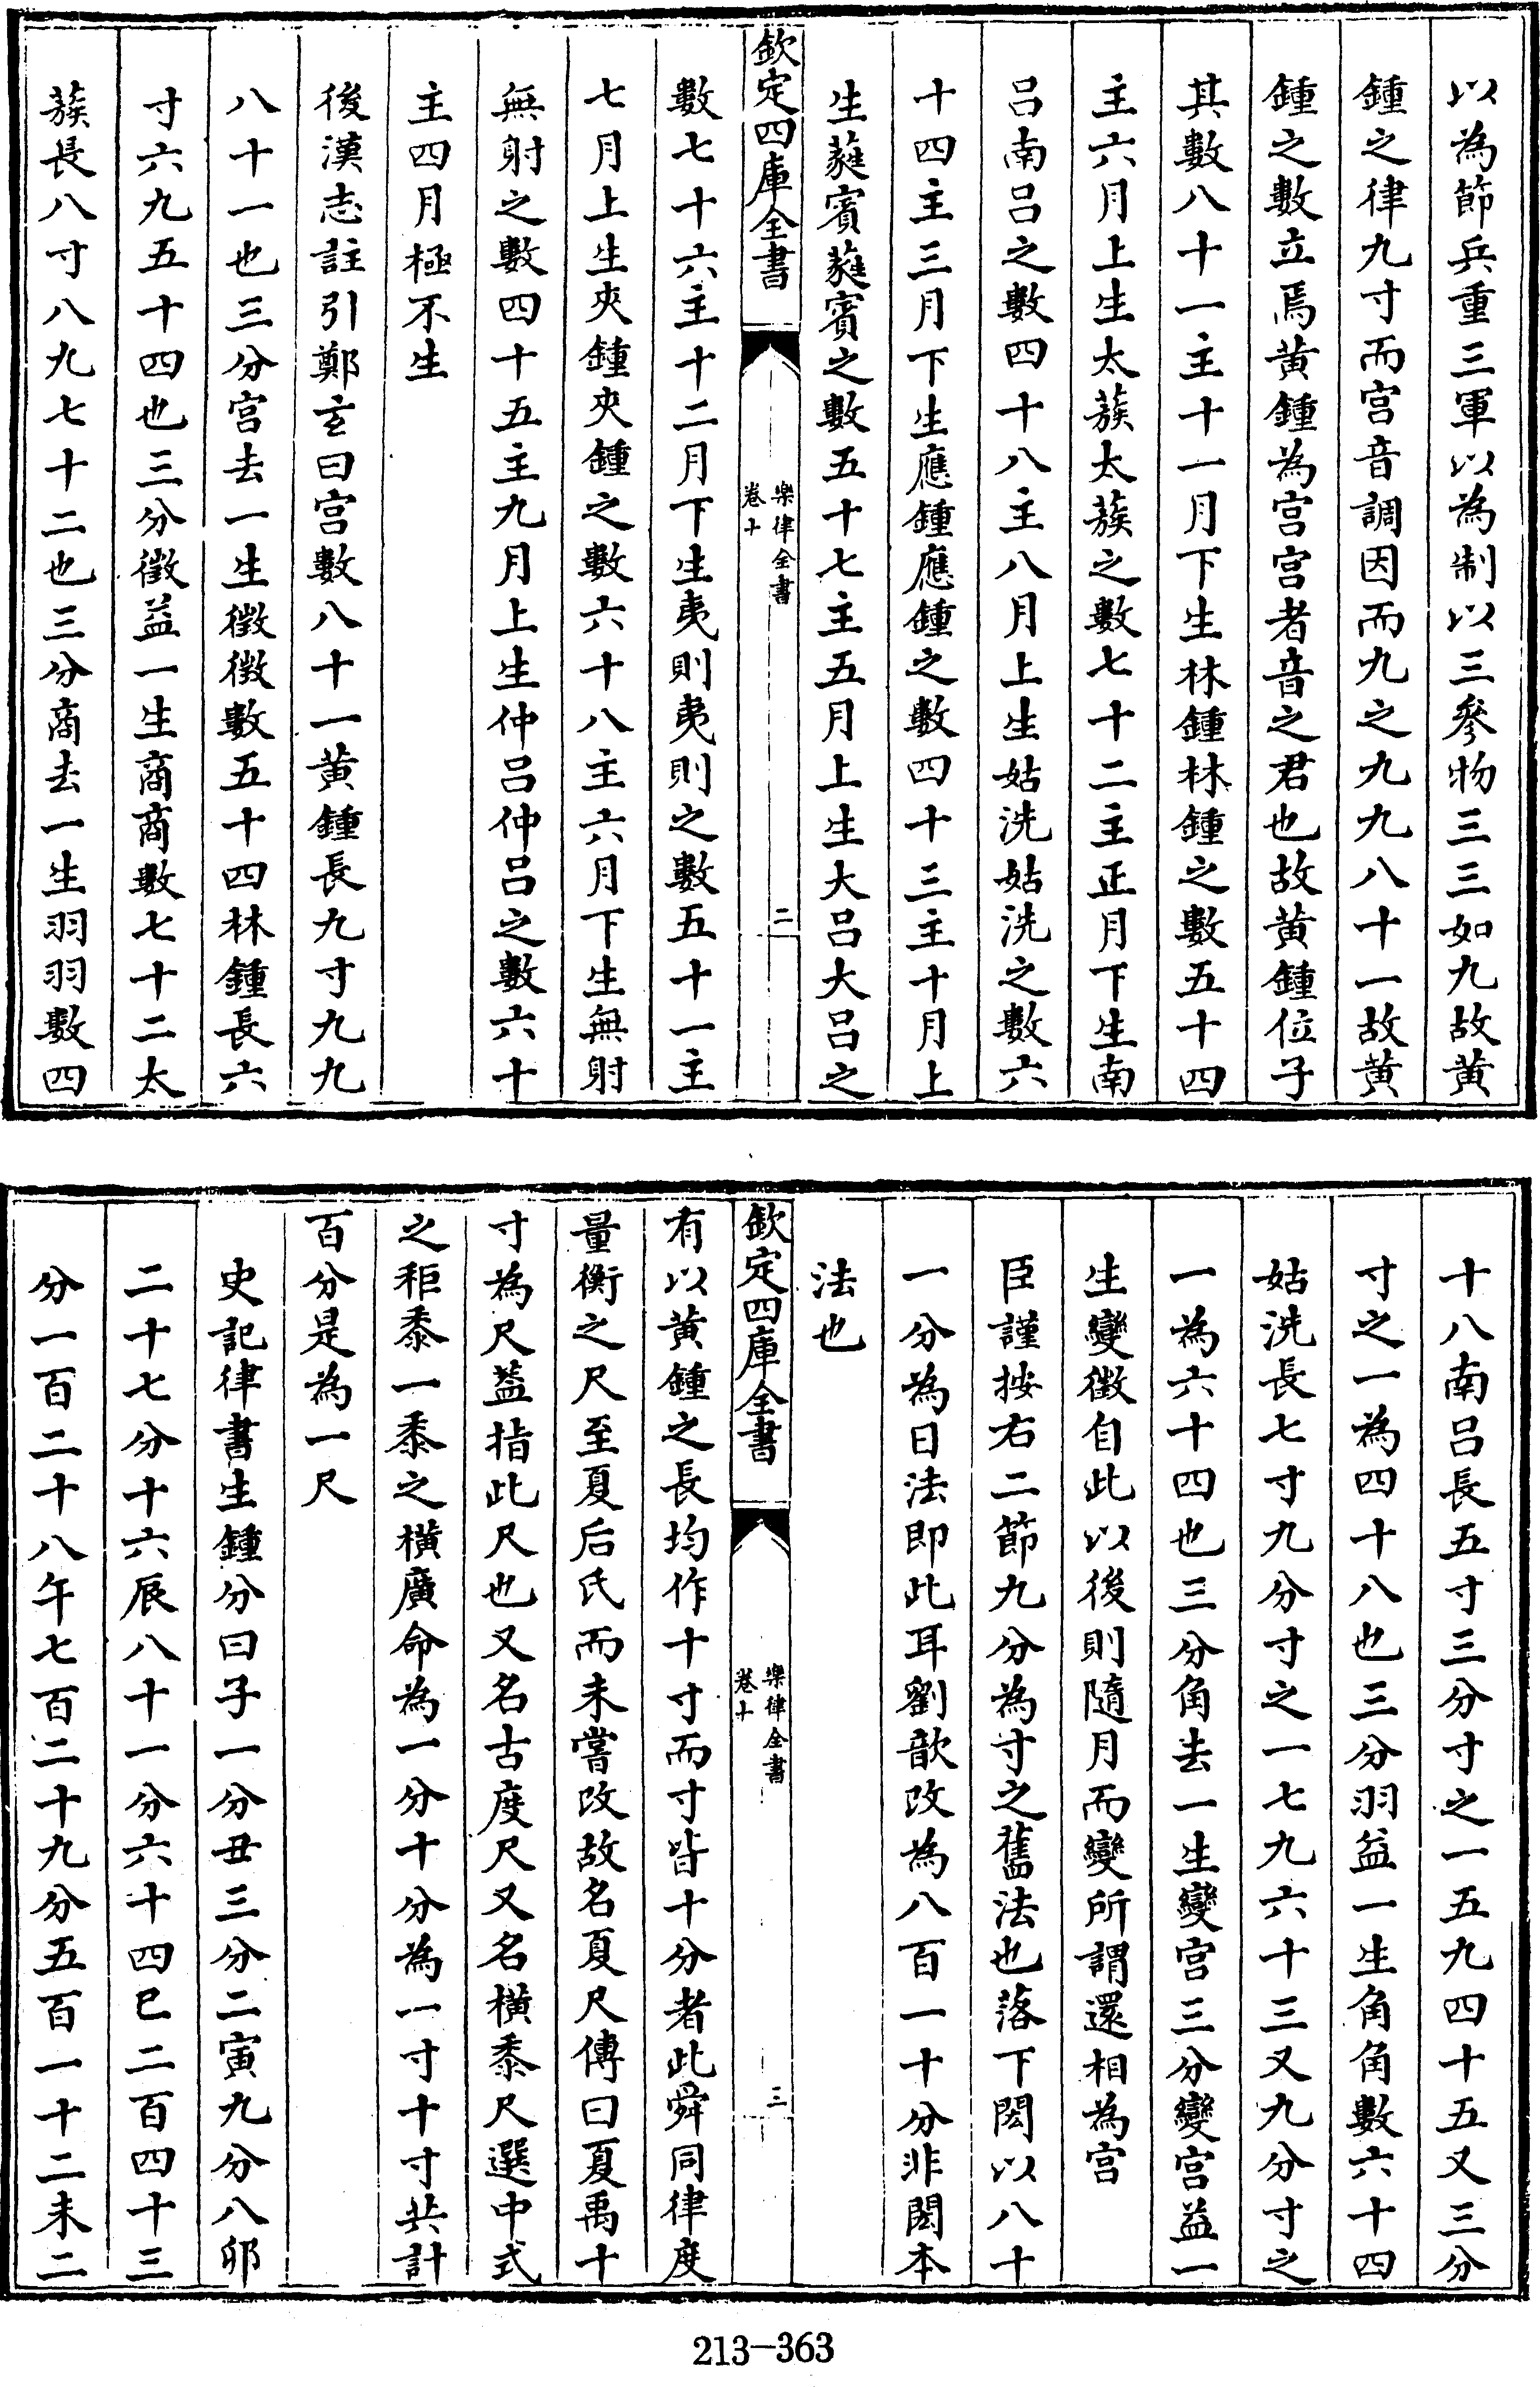 以為節兵重三軍以為制以三參物三三如九故黄
鍾之律九寸而宫音調因而九之九九八十一故黄
鍾之數立焉黄鍾為宫宫者音之君也故黄鍾位子
其數八十一主十一月下生林鍾林鍾之數五十四
主六月上生太蔟太蔟之數七十二主正月下生南
吕南吕之數四十八主八月上生姑洗姑洗之數六
十四主三月下生應鍾應鍾之數四十三主十月上
生蕤賓蕤賓之數五十七主五月上生大吕大吕之
欽定四庫全書
樂律全書
卷十
二
數七十六主十二月下生夷則夷則之數五十一主
七月上生夾鍾夾鍾之數六十八主六月下生無射
無射之數四十五主九月上生仲吕仲吕之數六十
主四月極不生
後漢志註引鄭玄曰宫數八十一黄鍾長九寸九九
八十一也三分宫去一生徵徵數五十四林鍾長六
寸六九五十四也三分徵益一生商商數七十二太
蔟長八寸八九七十二也三分商去一生羽羽數四
十八南吕長五寸三分寸之一五九四十五又三分
寸之一為四十八也三分羽益一生角角數六十四
姑洗長七寸九分寸之一七九六十三又九分寸之
一為六十四也三分角去一生變宫三分變宫益一
生變徵自此以後則隨月而變所謂還相為宫
臣謹按右二節九分為寸之舊法也落下閎以八十
一分為日法即此耳劉歆改為八百一十分非閎本
法也
欽定四庫全書
樂律全書
卷十
三
有以黄鍾之長均作十寸而寸皆十分者此舜同律度
量衡之尺至夏后氏而未嘗改故名夏尺傳曰夏禹十
寸為尺蓋指此尺也又名古度尺又名横黍尺選中式
之秬黍一黍之横廣命為一分十分為一寸十寸共計
百分是為一尺
史記律書生鍾分曰子一分丑三分二寅九分八卯
二十七分十六辰八十一分六十四巳二百四十三
分一百二十八午七百二十九分五百一十二未二
213-363